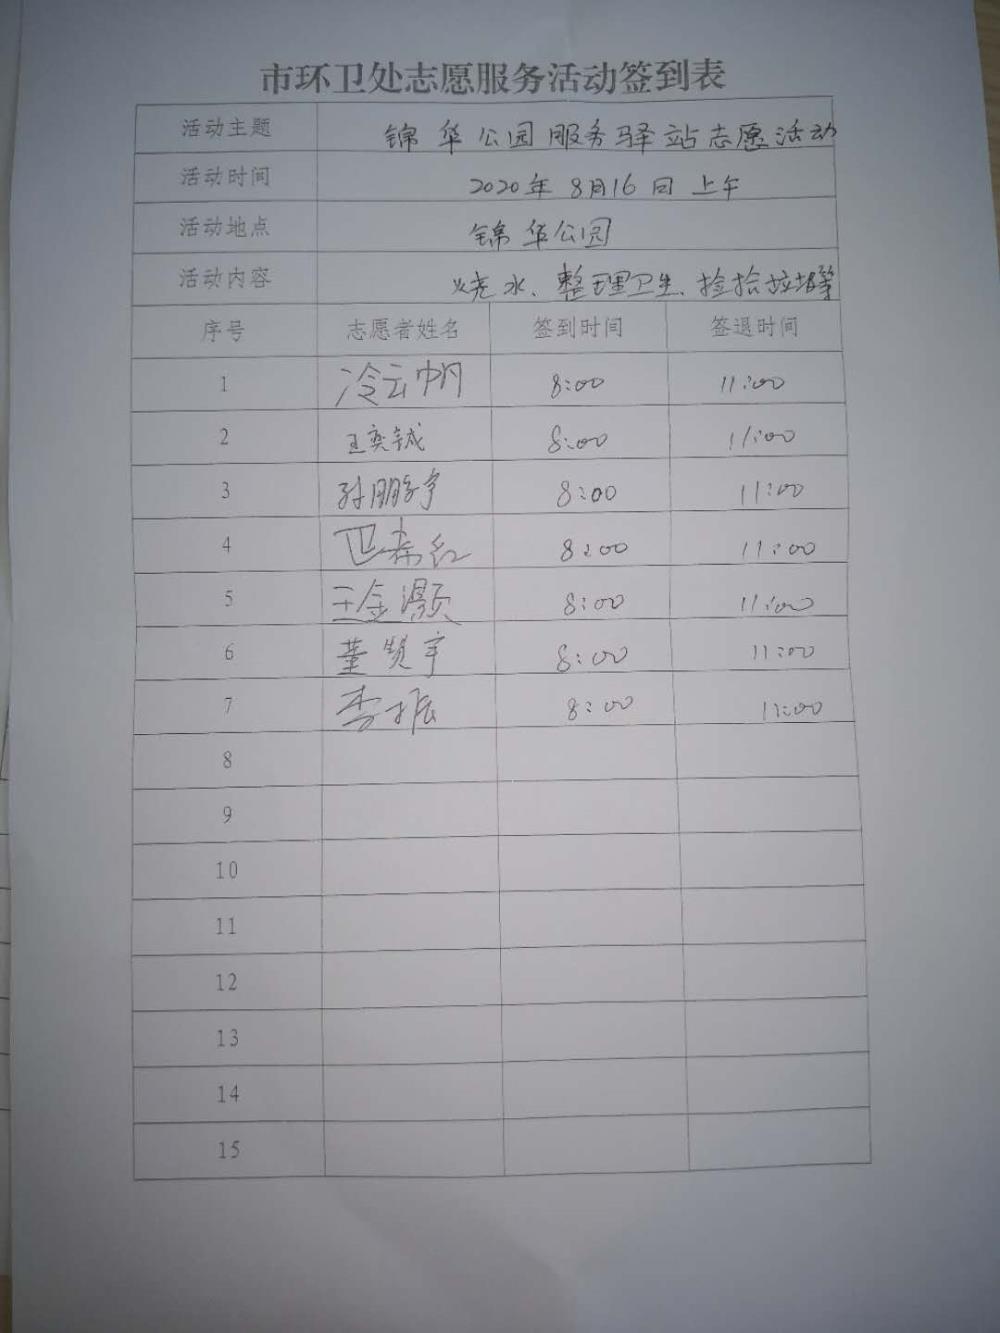 市环卫处志愿服务活动签到表
活动主题 锦华公园服务驿站志愿活动
活动时间 2020年8月16日上午
活动地点 锦华公园
活动内容 烧水、整理卫生、捡拾垃圾等
序号 志愿者姓名 签到时间 签退时间
1 冷云帆 8:00 11:00
2 王奕铖 8:00 11:00
3 孙鹏宇 8:00 11:00
4 匹希红 8:00 11:00
5 王金灏 8:00 11:00
6 董贤宇 8:00 11:00
7 李振 8:00 11:00
8
9
10
11
12
13
14
15